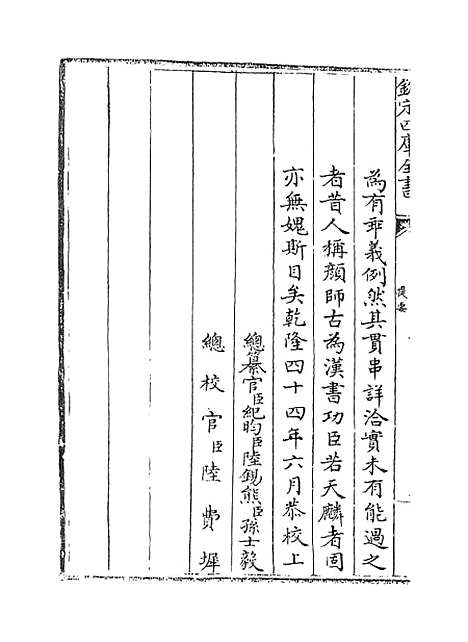 欽定四庫全書
提要
為有乖義例然其貫串詳洽實未有能過之
者昔人稱顏師古為漢書功臣若天麟者固
亦無媿斯目矣乾隆四十四年六月恭校上
總纂官臣紀昀臣陸錫熊臣孫士毅
總校官臣陸費墀